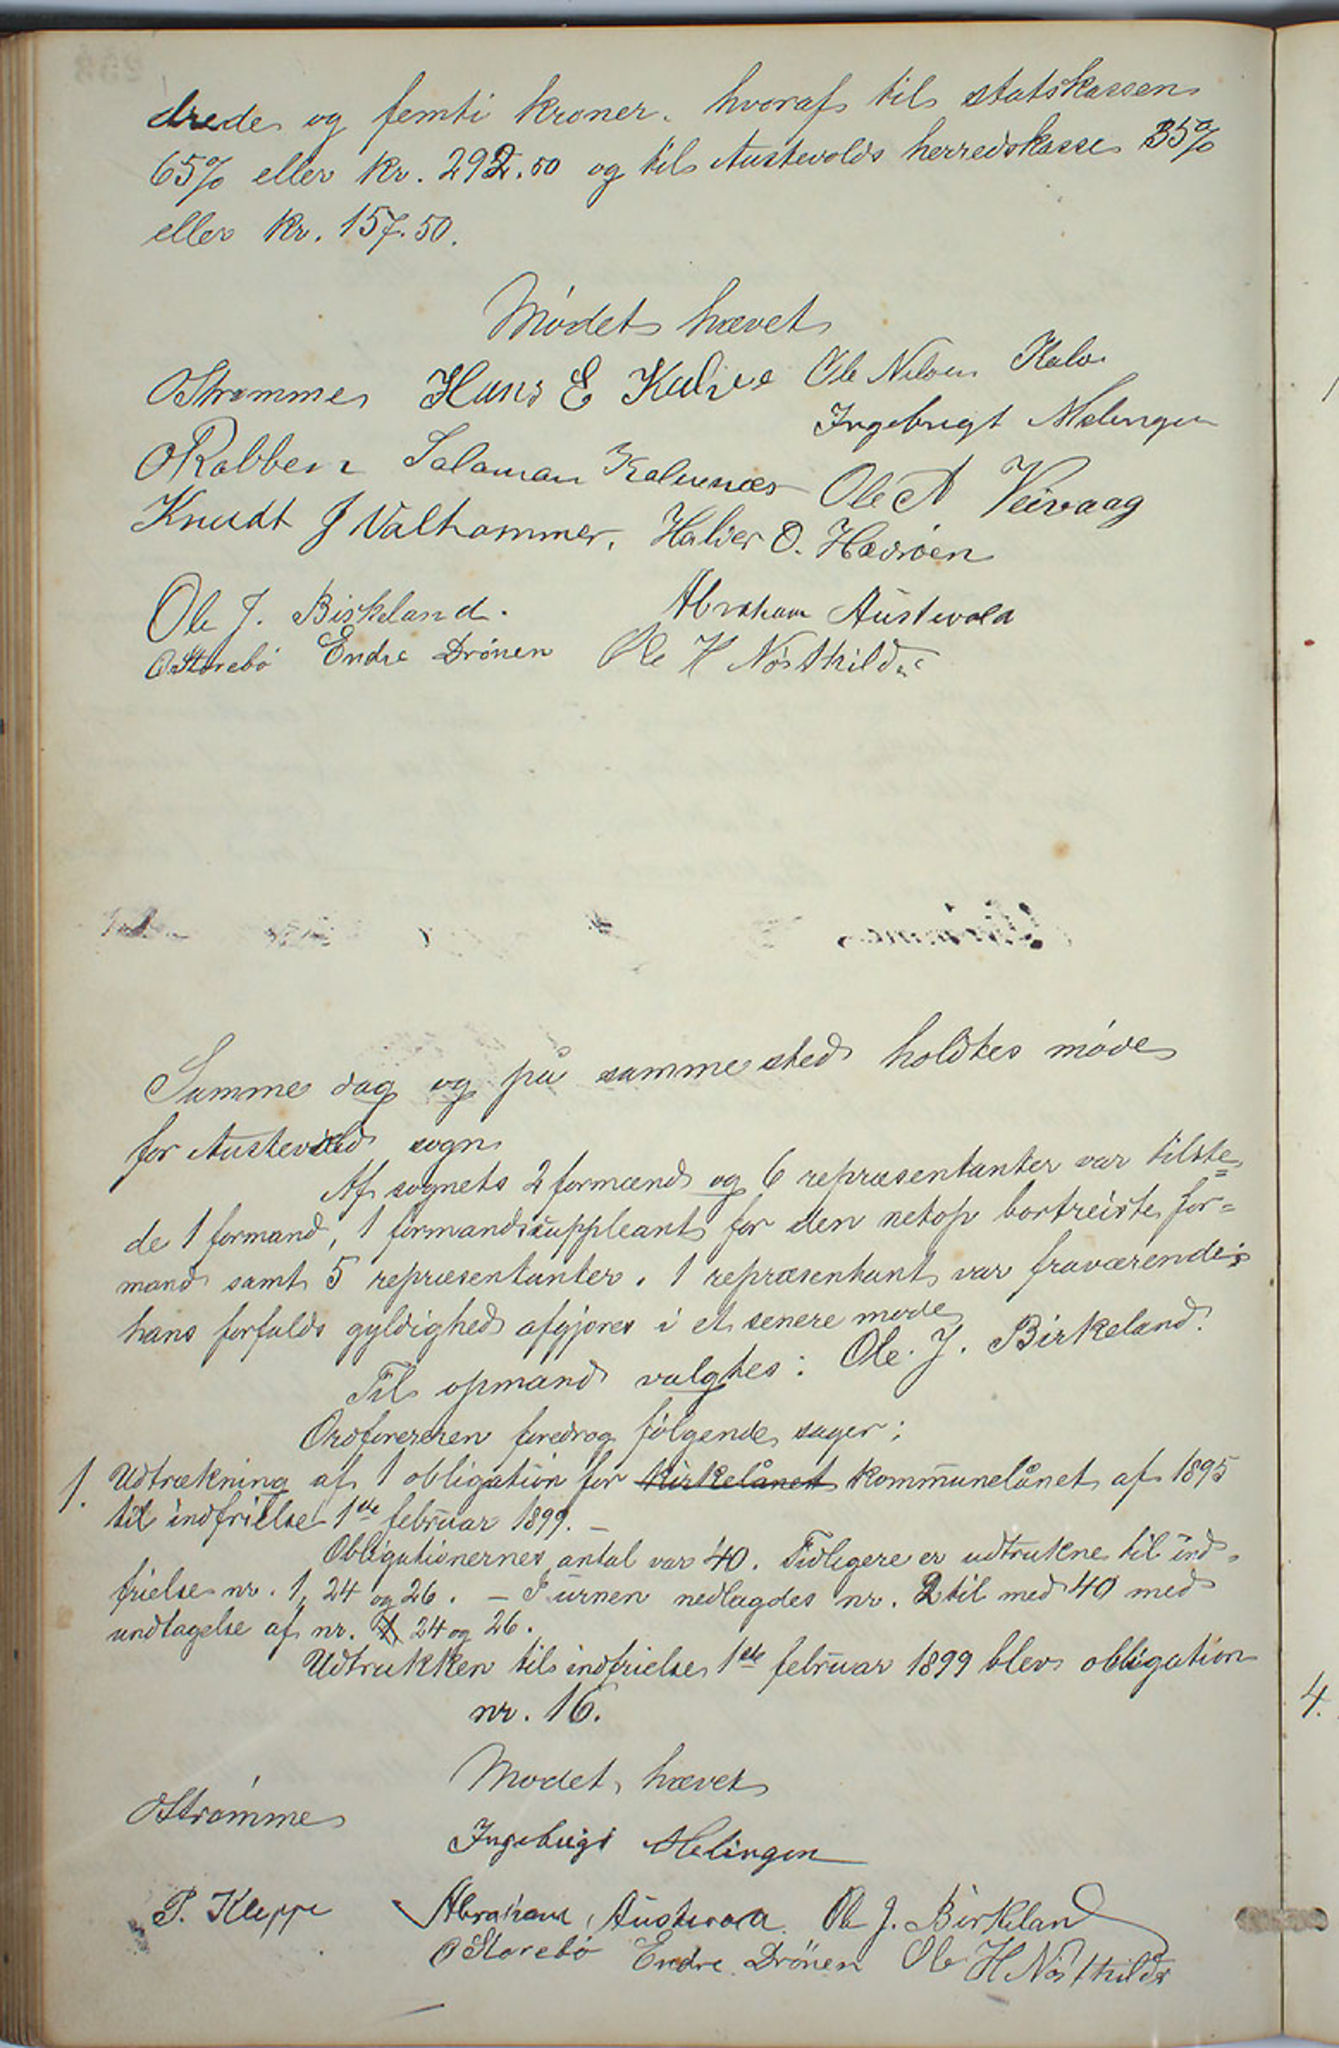 drede og femti kroner. hvoraf til statskassen
65% eller kr. 292.50 og til Austevolds herredskasse 35%
eller kr. 157.50.
Mödet hævet
OStrømme Hans E Kalve Ole Nilsen Kalve
Ingebrigt Melingen
ORabben Salamon Kalvenæs Ole A Veivaag
Knudt J Valhammer, Halver O. Hævröen
Ole J. Birkeland. Abraham Austevold
OStorebö Endre Drönen Ole H Nösthilde
Samme dag og på samme sted holdtes möde
for Austevold sogn
Af sognets 2 formænd og 6 repræsentanter var tilste=
de 1 formand, 1 formandssuppleant for den netop bortreiste for=
mand samt 5 repræsentanter. 1 repræsentant var fraværende;
hans forfalds gyldighed afgjøres i et senere möde
Til opmand valgtes: Ole. J. Birkeland.
Ordföreren foredrog fölgende sager:
1. Udtrækning af 1 obligation for kirkelånet kommunelånet af 1895
til indfrielse 1ste februar 1899. –
Obligationernes antal var 40. Tidligere er udtrukne til ind-
frielse nr. 1, 24 og 26. – I urnen nedlagdes nr. 2 til med 40 med
undtagelse af nr. 24 og 26.
Udtrukken til indfrielse 1ste februar 1899 blev obligation
nr. 16.
Mödet hævet
OStrömme
Ingebrigt Melingen
P. Kleppe Abraham Austevold Ole J. Birkeland
OStorebö Endre Drönen Ole H Nösthilde
4.